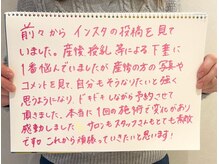 前々から インスタの投稿を見て
いました。産後、授乳 等による下垂に
1番悩んでいましたが産後の方の写真や
コメントを見て、自分もそうなりたいと強く
思うようになり ドキドキしながら予約させて
頂きました。本当に1回の施術で変化があり
感動しました サロンもスタッフさんもとても素敵
です♡ これから頑張っていきたいと思います!